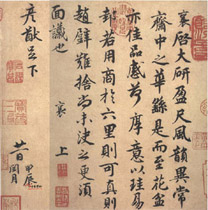 襄啓大研盈尺風韻異常
齋中之華繇是而至花盆
亦佳品感荷厚意以珪易
邽若用商於六里則可真則
趙璧難捨尚未決之更須
面議也 襄 上
彥猷足下
廿一日 甲辰閏月